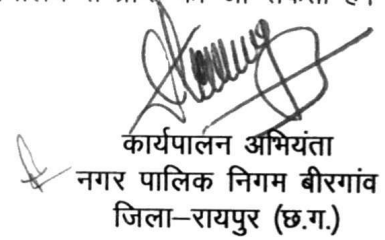 कार्यपालन अभियंता
नगर पालिक निगम बीरगांव
जिला–रायपुर (छ.ग.)